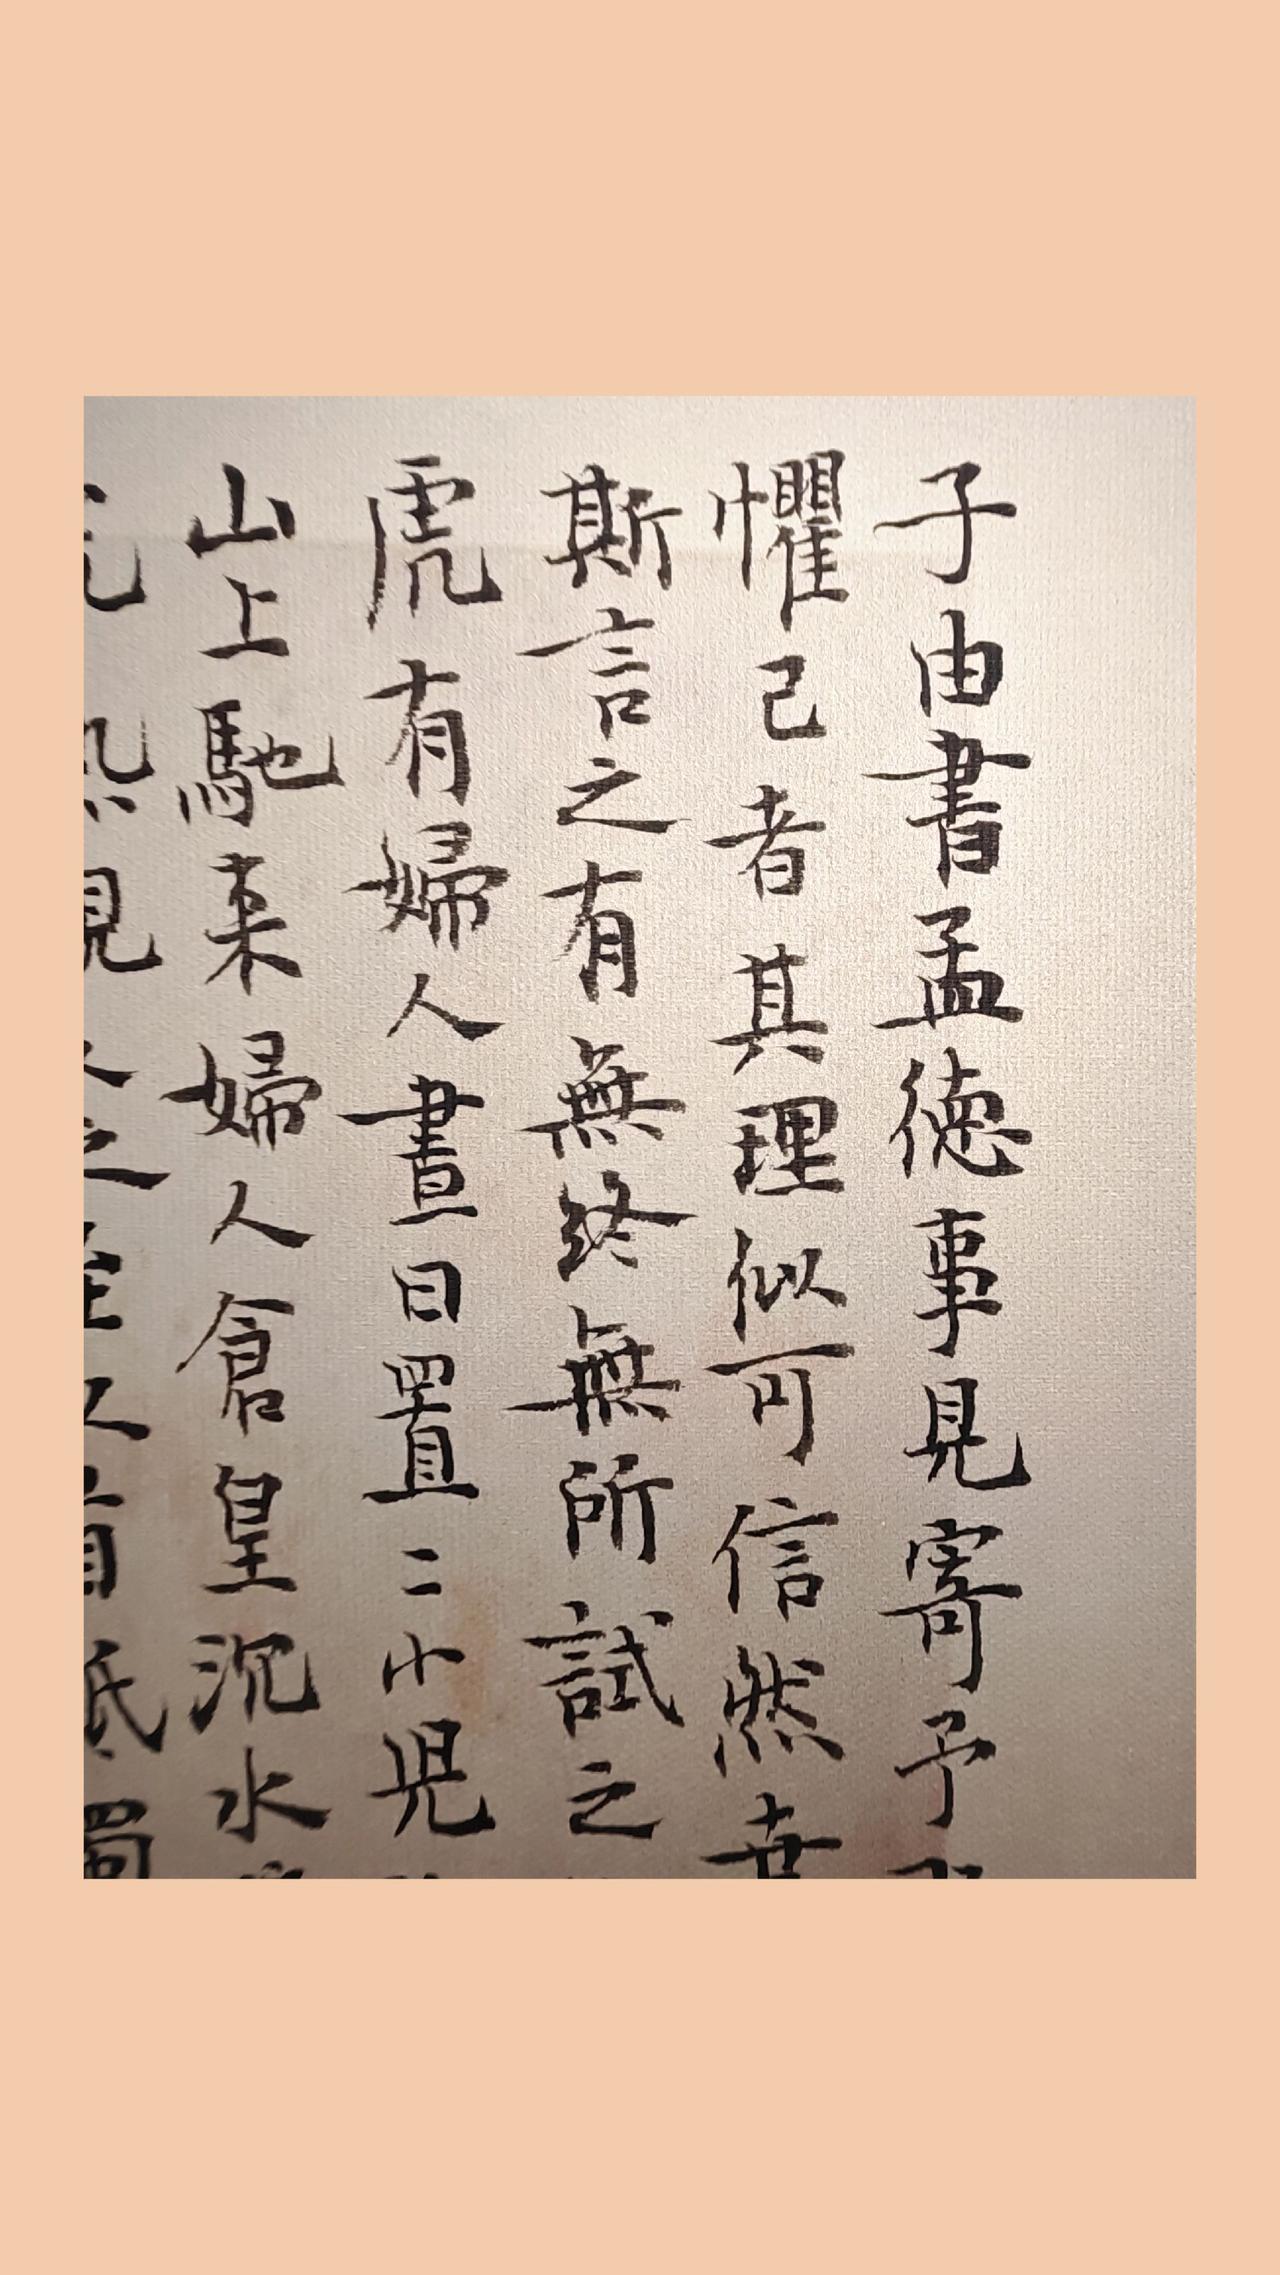 子由書孟德事見寄予
懼己者其理似可信然
斯言之有無終無所試之
虎有婦人晝日置二小兒
山上馳来婦人倉皇沉水